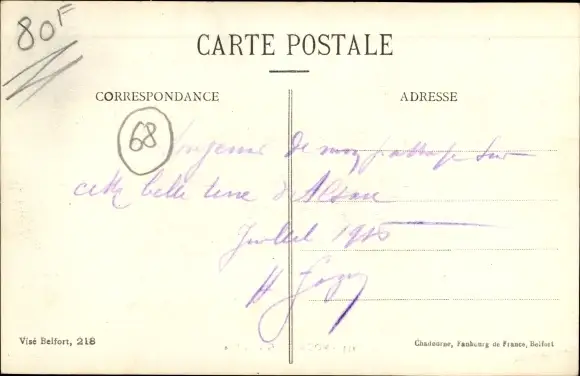 80F
CARTE POSTALE
CORRESPONDANCE
ADRESSE
68
de mon passage sur
cette belle terre d'Alsace
Juillet 1915
H
Visé Belfort, 218
Chadourne, Faubourg de France, Belfort